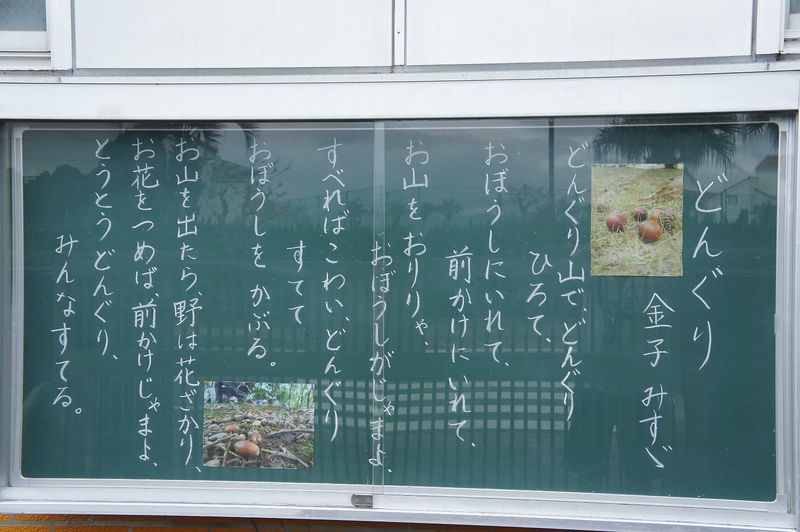 どんぐり
金子 みすゞ
どんぐり山で、どんぐり
ひろて、
おぼうしにいれて、
前かけにいれて、
お山をおりりゃ、
おぼうしがじゃまよ、
すべればこわい、どんぐり
すてて
おぼうしを かぶる。
お山を出たら、野は花ざかり、
お花をつめば、前かけじゃまよ、
とうとう どんぐり、
みんなすてる。